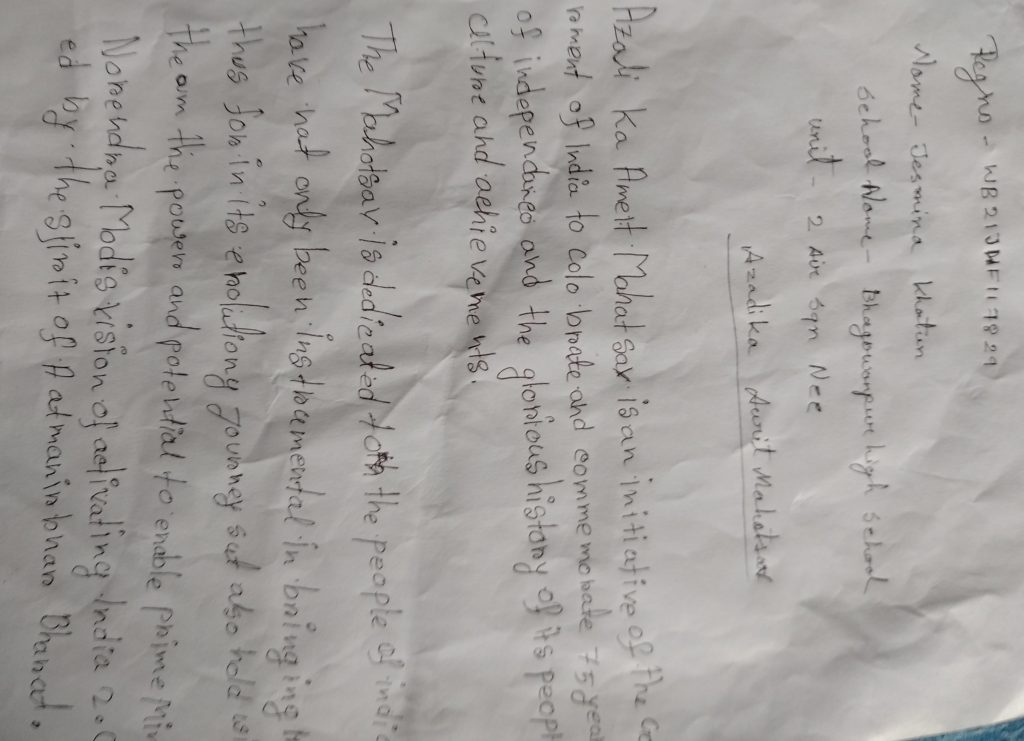 Regno - WB21JWF117829
Name - Jesmina Khatun
School Name - Bhagwanpur high school
unit - 2 Air Sqn Ncc
Azadika Amrit Mahotsav
Azadi ka Amrit Mahatsav is an initiative of the Go
nment of India to colo brate and commemorate 75 year
of independance and the glorious history of its peopl
culture and achievements.
The Mahotsav is dedicated to the people of indi
have nat only been instrumental in bringing
thus for in its evolutiony journey sut also hold wi
the om the power and potential to enable prime Min
Norendra Modis vision of activating India 2.0
ed by the sjirit of Atmanirbhar Bharat.